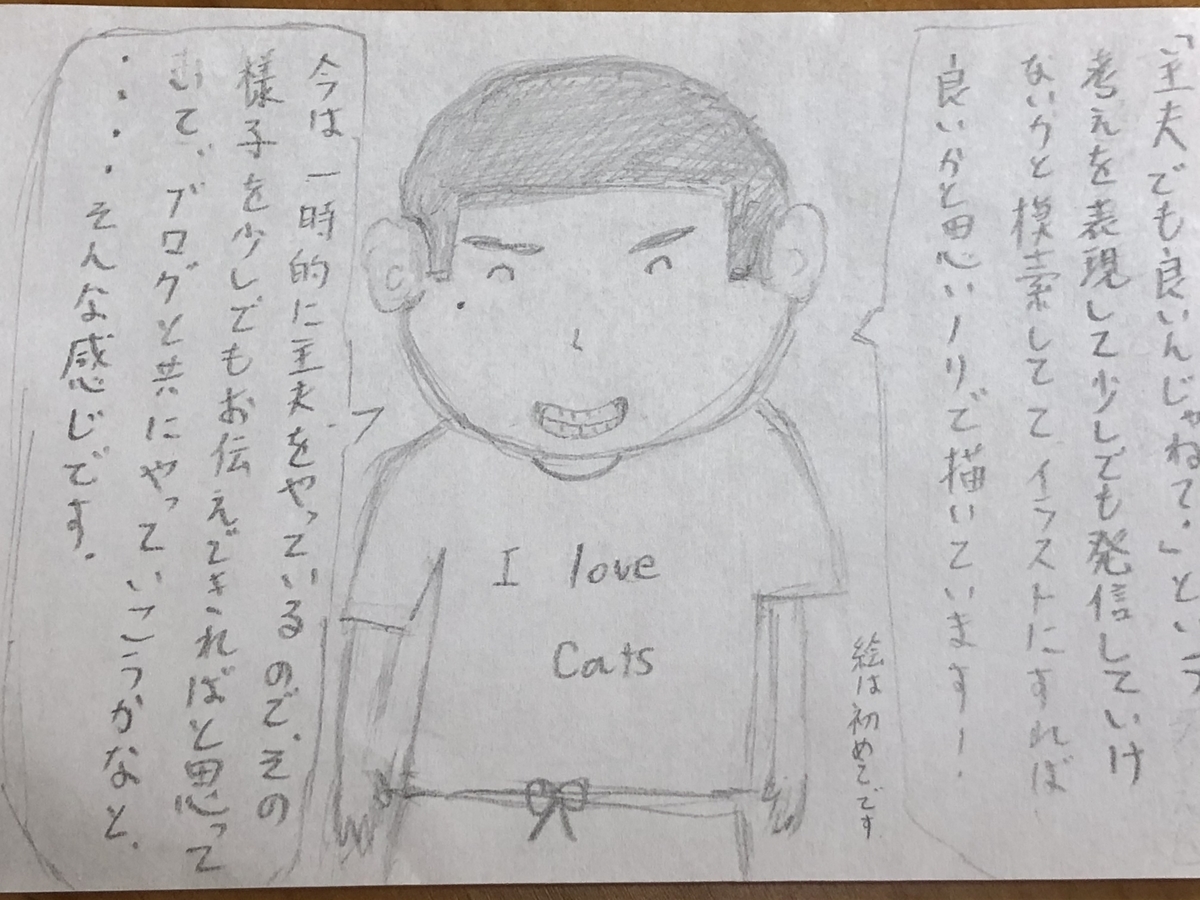 「主夫でも良いんじゃねて。」という
考えを表現して少しでも発信していけ
ないかと模索してて イラストにすれば
良いかと思いノリで描いています!
絵は初めてです
I love
Cats
今は一時的に主夫をやっているので、その
様子を少しでもお伝えできればと思って
いて、ブログと共にやっていこうかなと、
・・・そんな感じです。